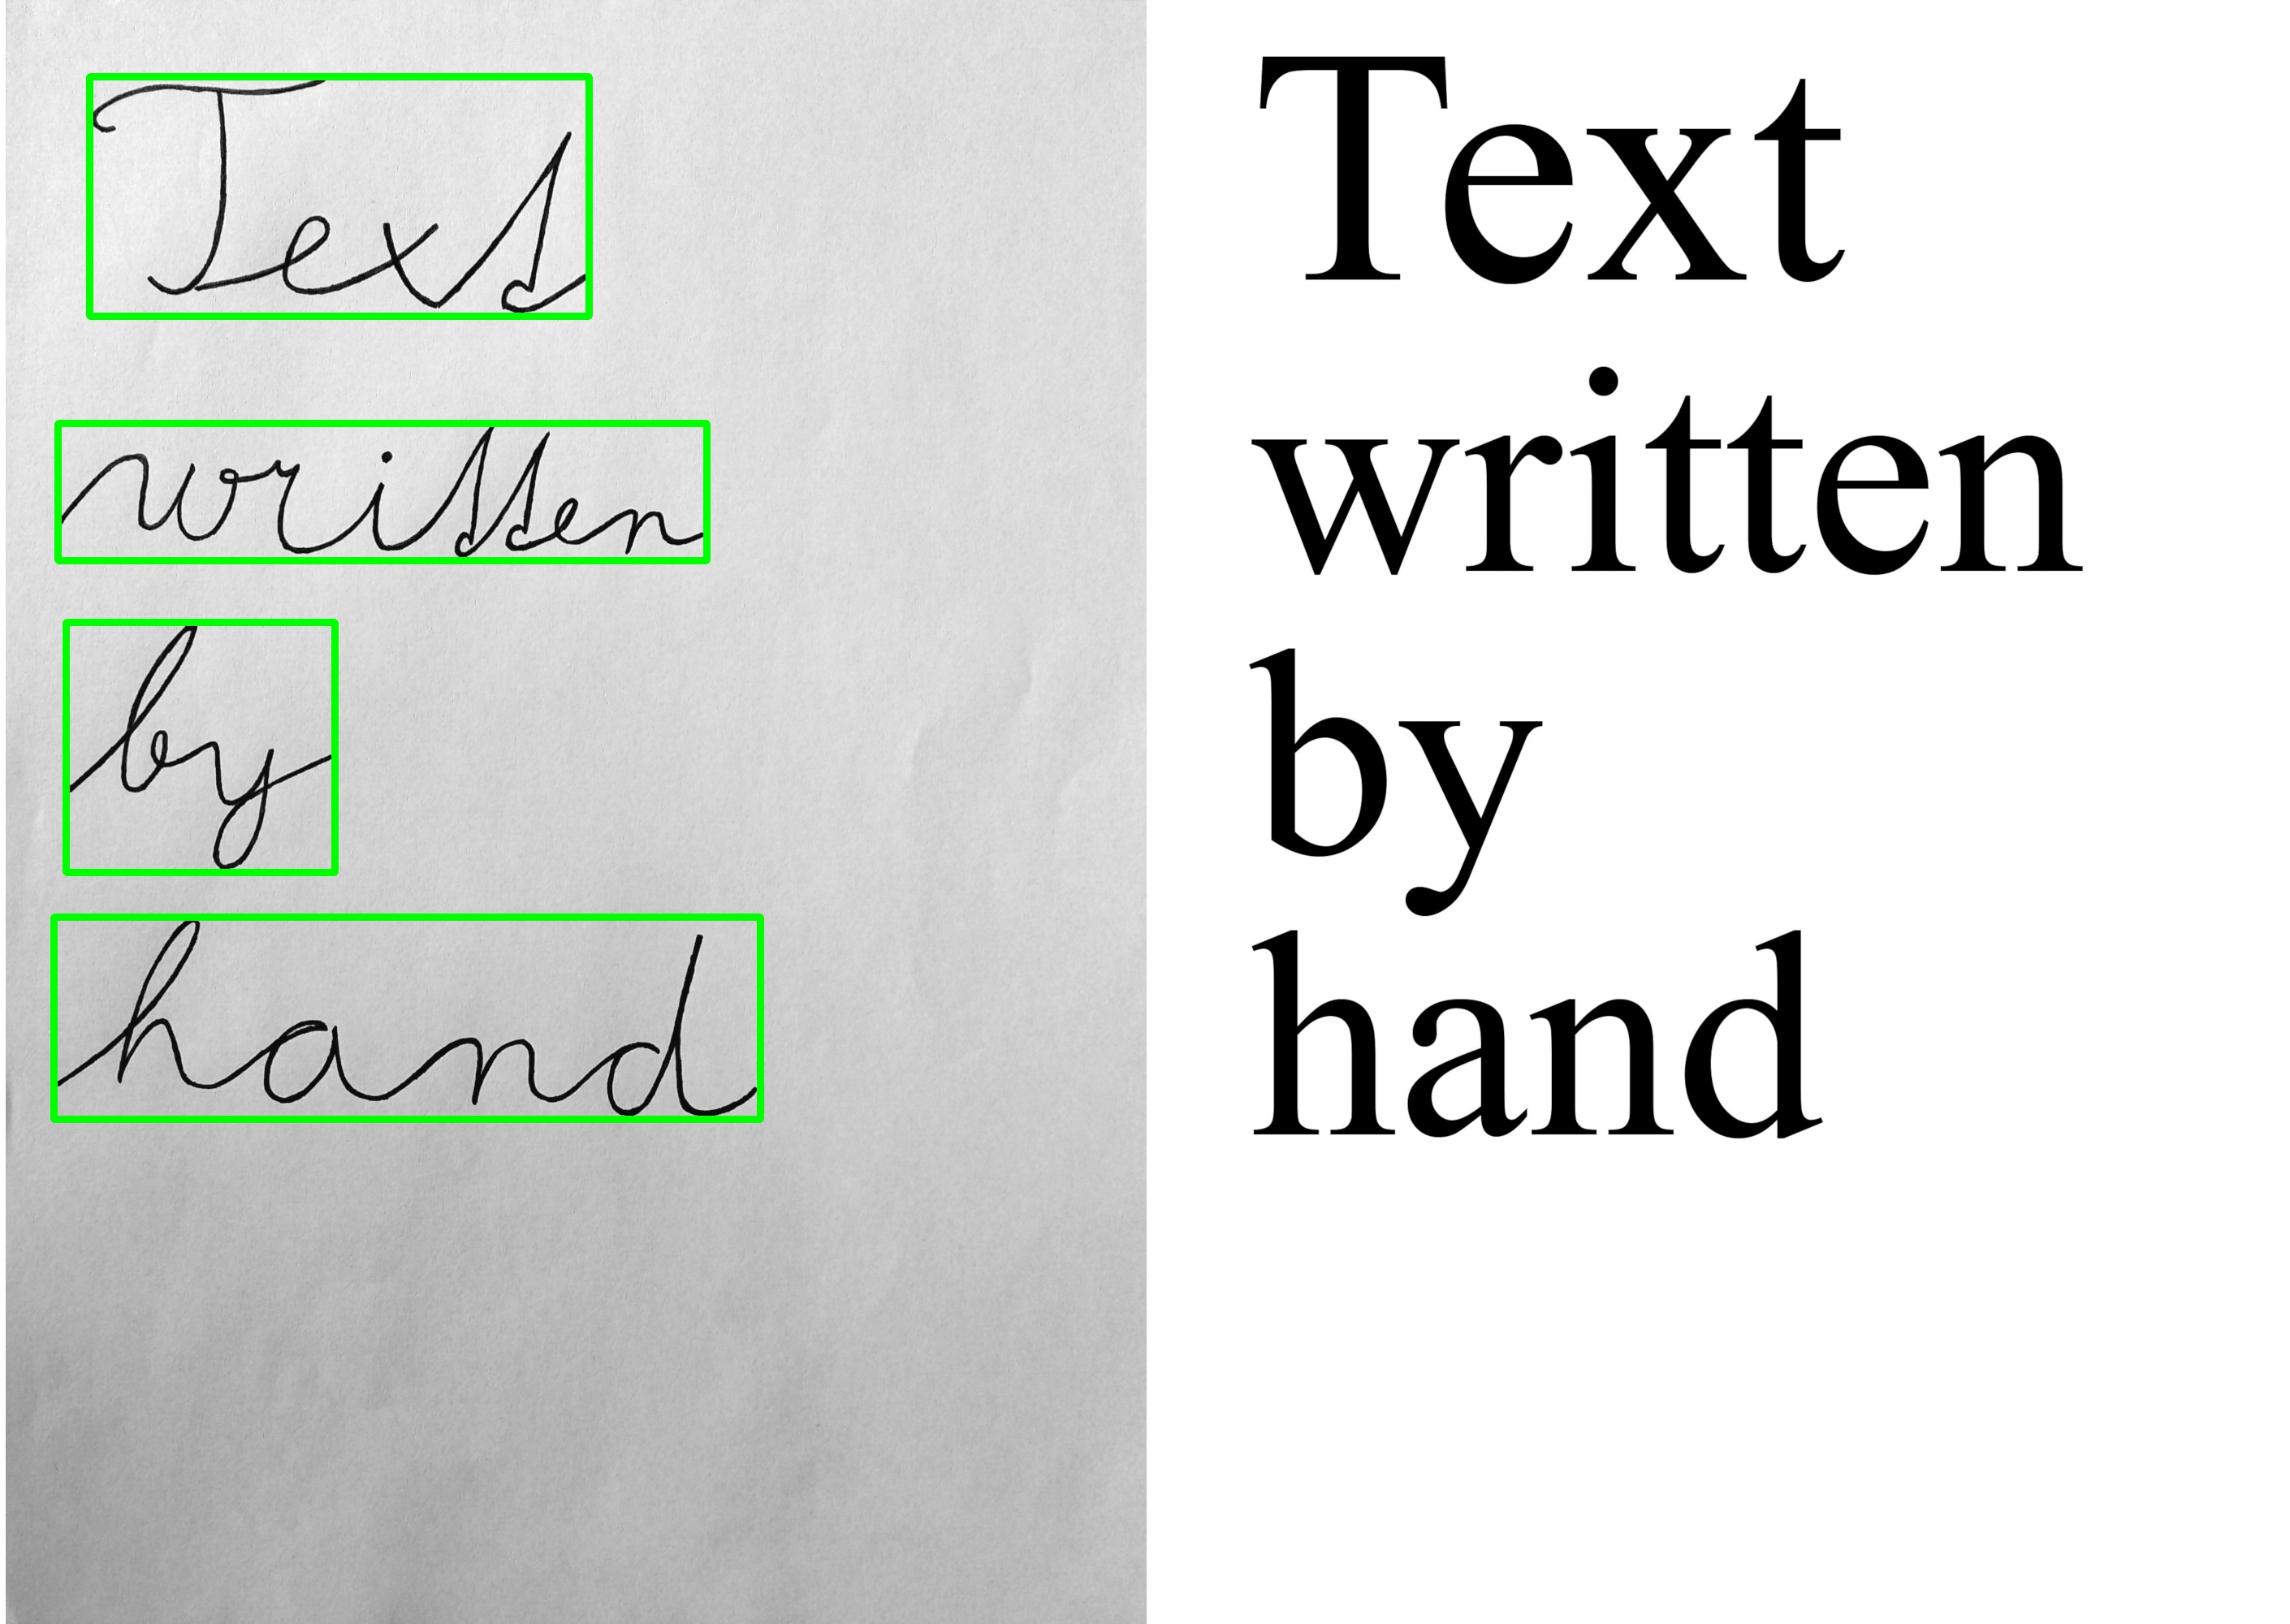 Text
written
by
hand
Text
written
by
hand